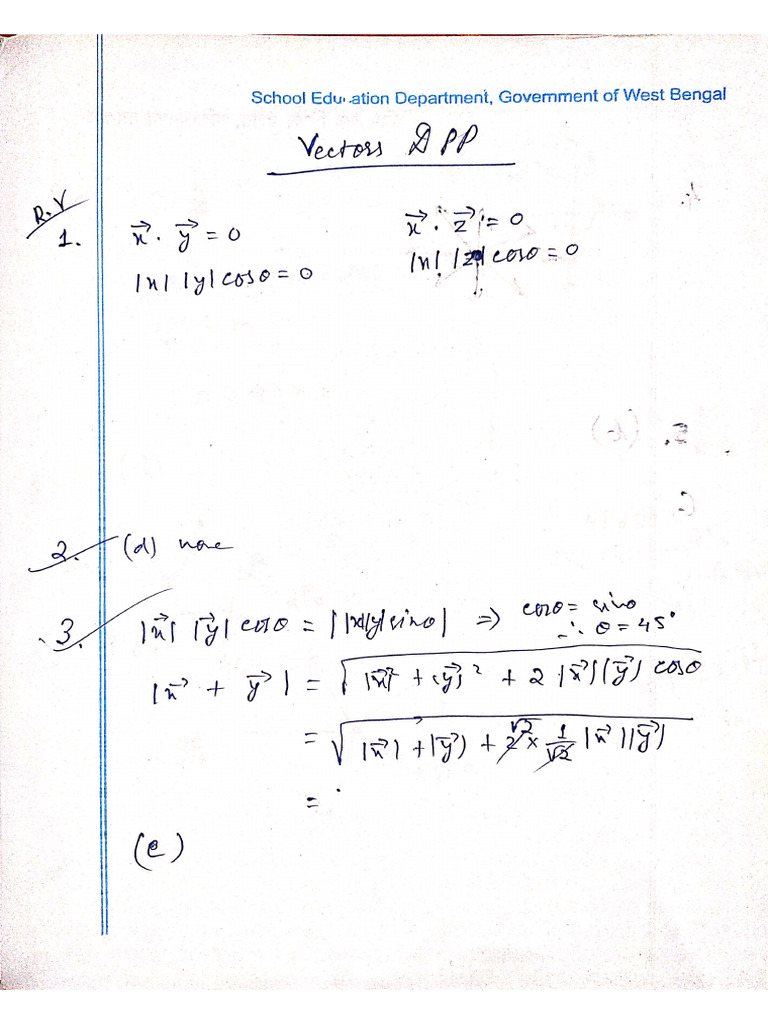 School Education Department, Government of West Bengal
Vectors DPP
R.V
1. x⃗ · y⃗ = 0    x⃗ · z⃗ = 0
|x| |y| cosθ = 0    |x| |z| cosθ = 0
5. (b)
2. (d) none
3. |x⃗| |y⃗| cosθ = ||x||y| sinθ| ⇒ cosθ = sinθ
∴ θ = 45°
|x⃗ + y⃗| = √(|x⃗|² + |y⃗|² + 2 |x⃗| |y⃗| cosθ
= √(|x⃗| + |y⃗| + 2 √2 × 1/√2 |x⃗| |y⃗|
=
(c)